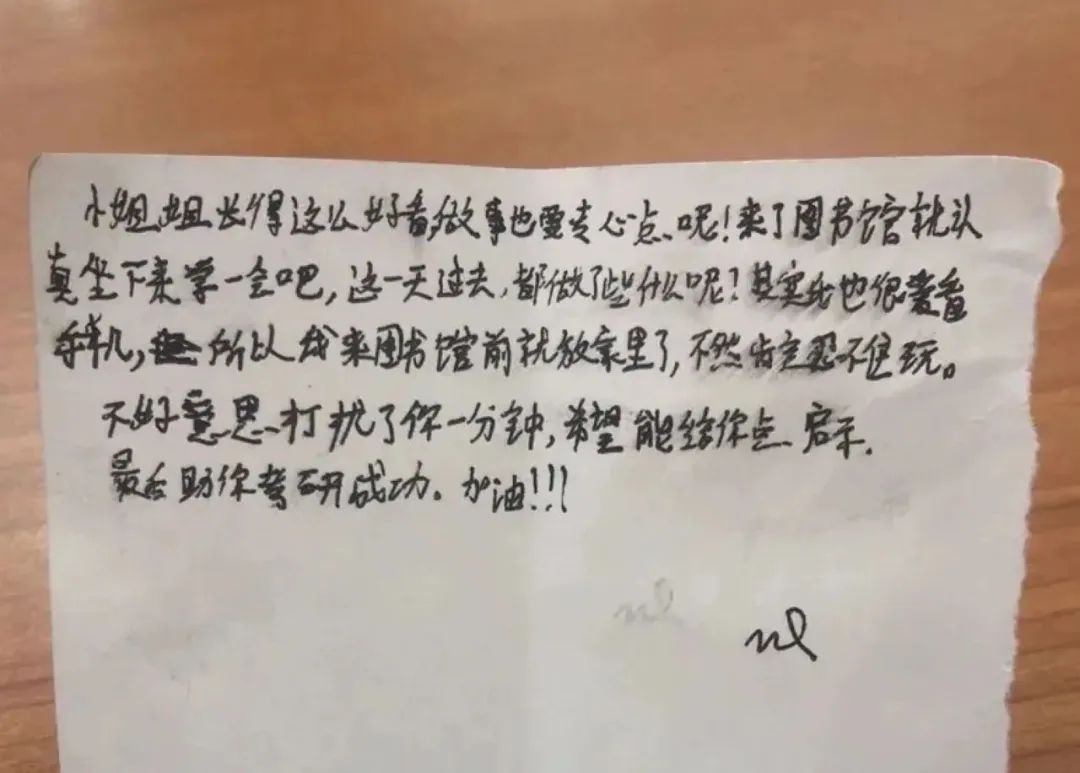 小姐姐长得这么好看做事也要专心点呢!来了图书馆就认
真坐下来学一会吧,这一天过去,都做了些什么呢?其实我也很爱看
手机,所以我来图书馆前就放家里了,不然肯定忍不住玩。
不好意思打扰了你一分钟,希望能给你点启示.
最后助你考研成功。加油!!!